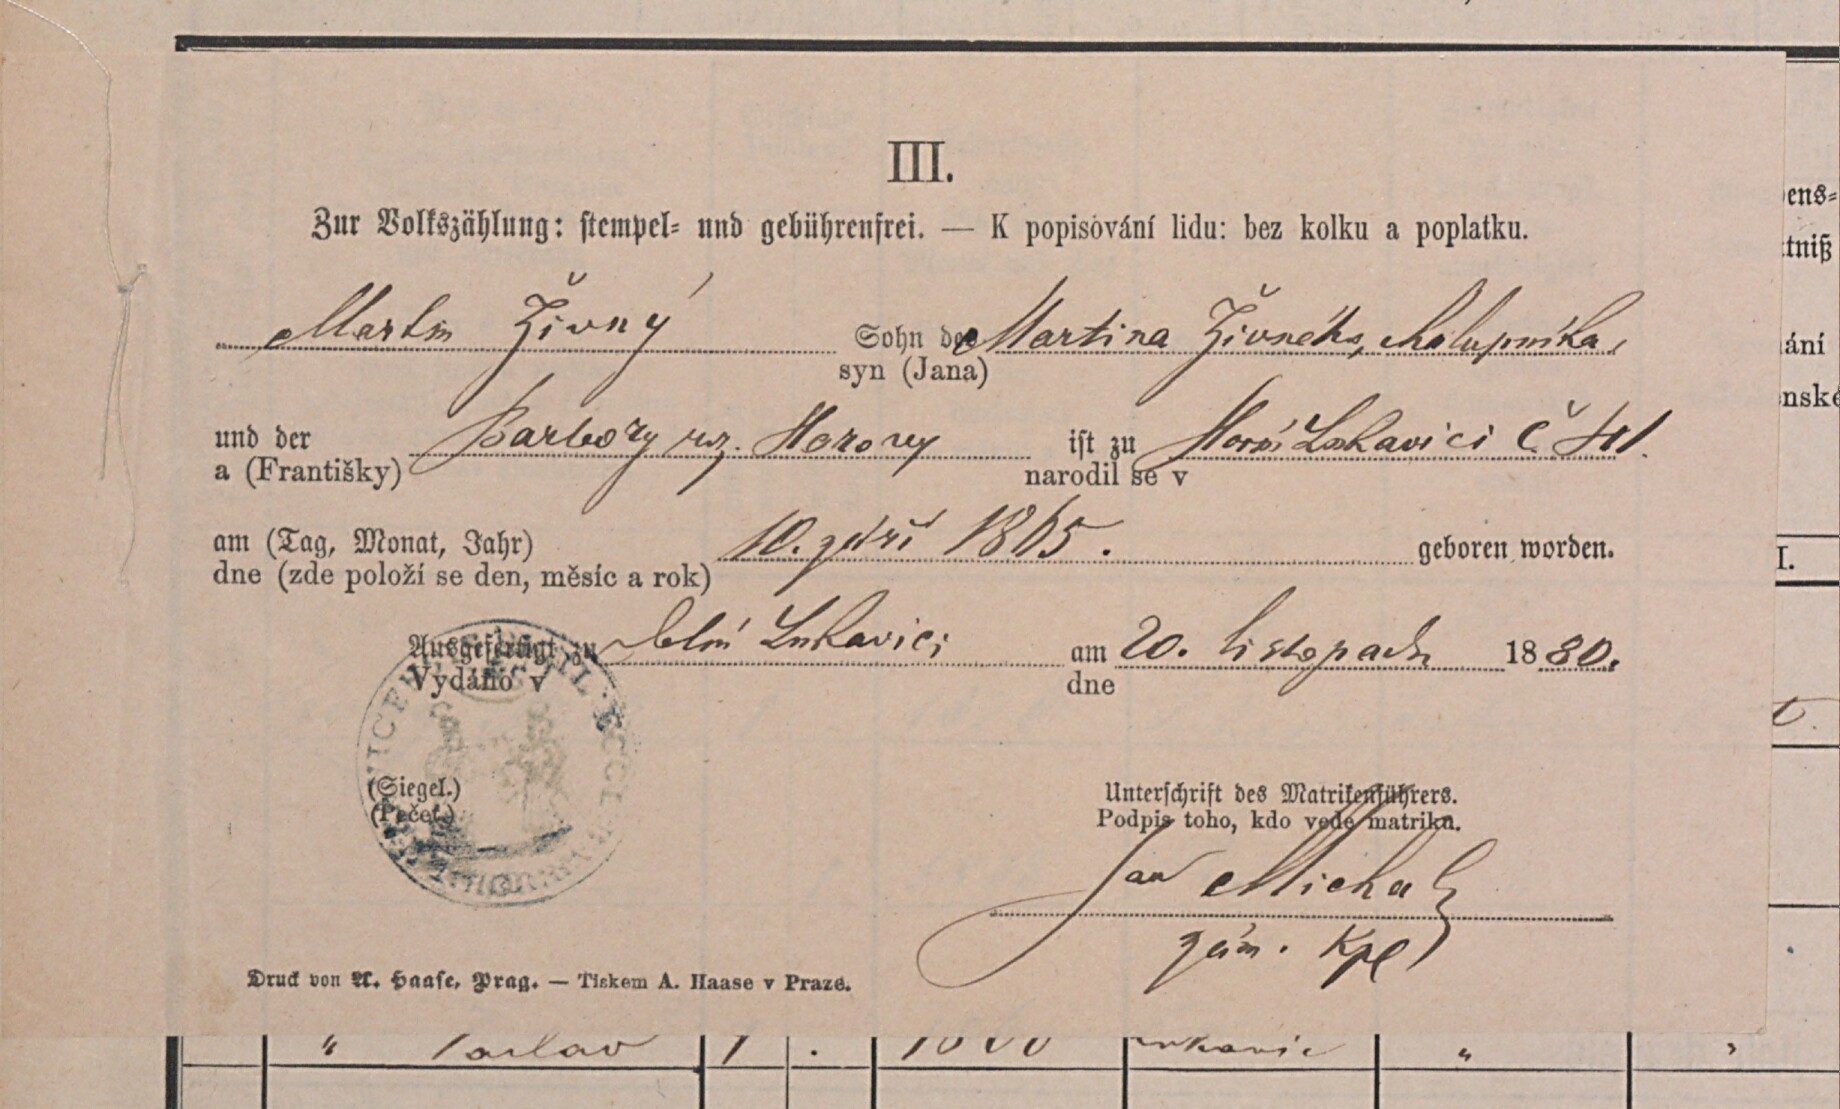 III.
Zur Volkszählung: stempel- und gebührenfrei. — K popisování lidu: bez kolku a poplatku.
Martin Živný Sohn des Martina Živného, chalupníka,
syn (Jana)
und der Barbory roz. Horovy ist zu Horní Lukavici č.
a (Františky) narodil se v
am (Tag, Monat, Jahr) 10. září 1865. geboren worden.
dne (zde položí se den, měsíc a rok)
Ausgefertigt zu Dolní Lukavici am 20. listopadu 1880.
Vydáno v dne
(Siegel.) Unterschrift des Matrikenführers.
(Pečeť.) Podpis toho, kdo vede matriku.
Jan Michal
zám. kpl
Druck von A. Haase, Prag. — Tiskem A. Haase v Praze.
" Václav 1 .